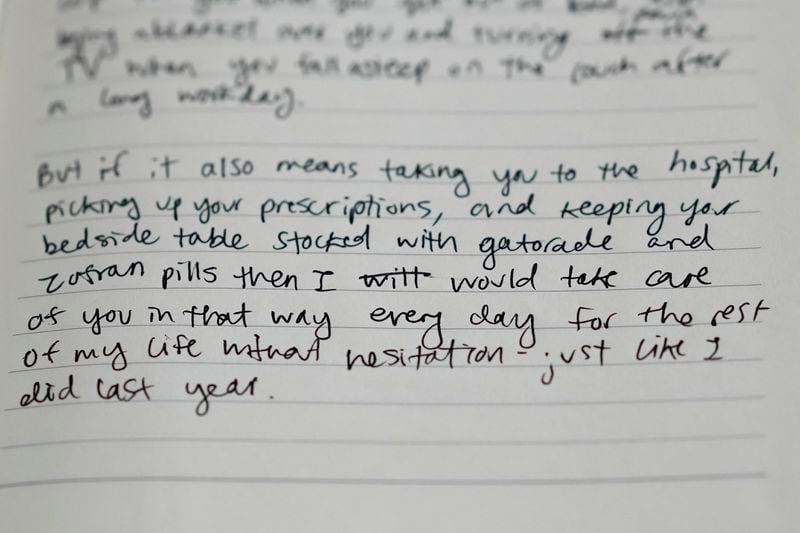 you and turning off the
TV when you fall asleep on the couch after
a long work day.
But if it also means taking you to the hospital,
picking up your prescriptions, and keeping your
bedside table stocked with gatorade and
zofran pills then I will would take care
of you in that way every day for the rest
of my life without hesitation - just like I
did last year.